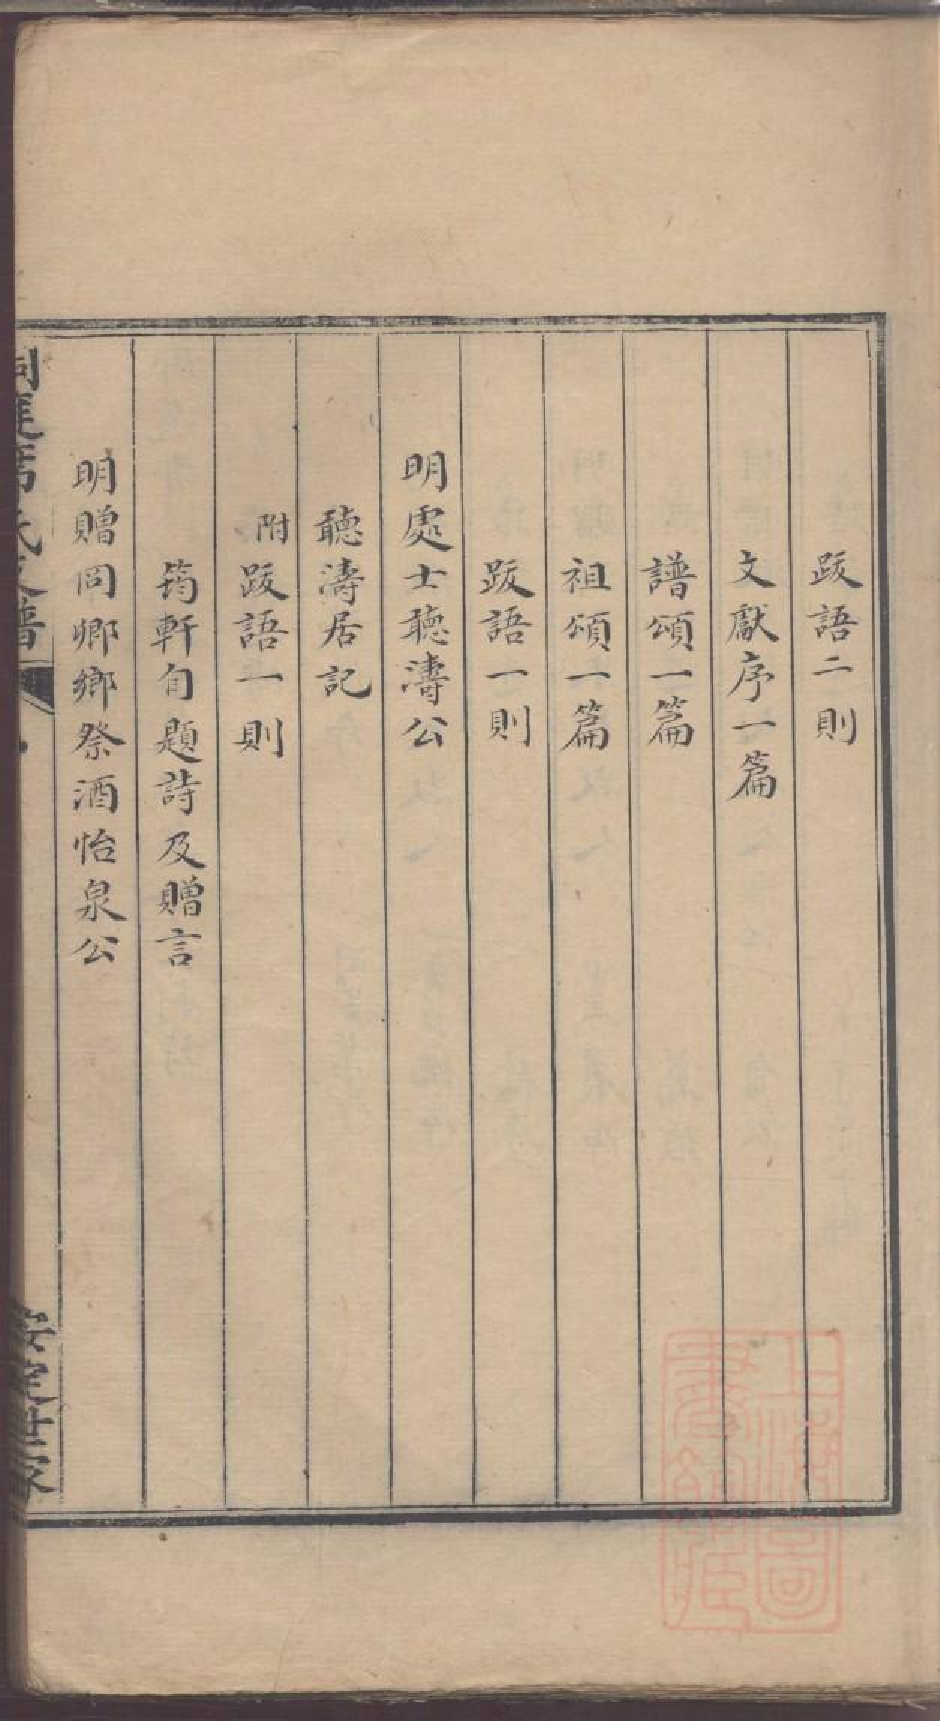 跋語二則
文獻序一篇
譜頌一篇
祖頌一篇
跋語一則
明處士聽濤公
聽濤居記
附跋語一則
筠軒自題詩及贈言
明贈同卿鄉祭酒怡泉公
洞庭席氏支譜
安定世家
上海圖書館藏